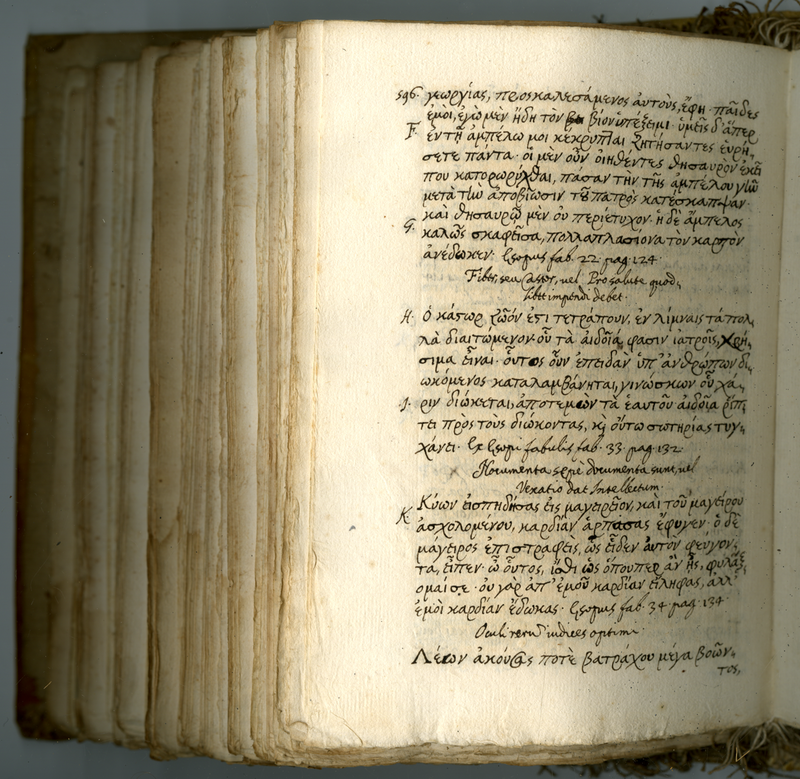 596. γεωργίας, προσκαλεσάμενος ἀυτοὺς, ἔφη· παῖδες
ἐμοὶ, ἐγὼ μὲν ἤδη τὸν βίον ὑπέξειμι· ὑμεῖς δ' ἅπερ
F. ἐν τῇ ἀμπέλω μοι κέκρυπ]αι ζητήσαντες ἑυρή,
σετε πάντα· οἱ μὲν οὖν οἰηθέντες θησαυρὸν ἐκεῖ
που κατορωρύχθαι, πασαν την τῆς ἀμπέλου γῆν
μετὰ τὴν ἀποβίωσιν τοῦ πατρὸς κατέσκαπψαν·
καὶ θησαυρῷ μὲν ὀυ περιέτυχον· ἡ δὲ ἄμπελος
G. καλῶς σκαφεῖσα, πολλαπλασίονα τὸν καρπὸν
ἀνέδωκεν· Esopus fab. 22. pag. 124·
Fiber, seu Castor, vel Pro salute quod,
libet impendi debet·
H. Ὁ κάστωρ ζῶόν ἐστι τετράπουν, ἐν λίμναις τὰ πολ,
λὰ διαιτώμενον· οὗ τὰ αἰδοῖά, φασιν ἰατροῖς, χρή,
σιμα εἶναι· οὗτος οὖν ἐπειδὰν ὑπ' ἀνθρώπων δι,
ωκόμενος καταλαμβάνηται, γινώσκων οὗ χά,
I. ριν διώκεται, ἀποτεμὼν τὰ ἑαυτοῦ αἰδοῖα ῥίπ,
τει πρὸς τοὺς διώκοντας, κὶ οὕτω σωτηρίας τυγ,
χάνει· Ex Esopi fabulis fab. 33. pag. 132·
Nocumenta sepè documenta sunt, vel
Vexatio dat Intellectum·
K. Κύων ἐισπηδήσας ἐις μαγειρεῖον, καὶ τοῦ μαγείρου
ἀσχολομένου, καρδίαν ἁρπασας ἔφυγεν· ὁ δὲ
μάγειρος ἐπιστραφεὶς, ὡς εἶδεν ἀυτὸν φεύγον,
τα, εἶπεν· ὦ οὗτος, ἴσθι ὡς ὅπουπερ ἂν ᾖς, φυλάξ,
ομαί σε· ὀυ γὰρ ἀπ' ἐμοῦ καρδίαν ἔιληφας, ἀλλ'
ἐμοὶ καρδίαν ἔδωκας· Esopus fab. 34. pag. 134·
Oculi rerū indices optimi·
Λέων ἀκούσας ποτὲ βατράχου μέγα βοῶν,
τος,